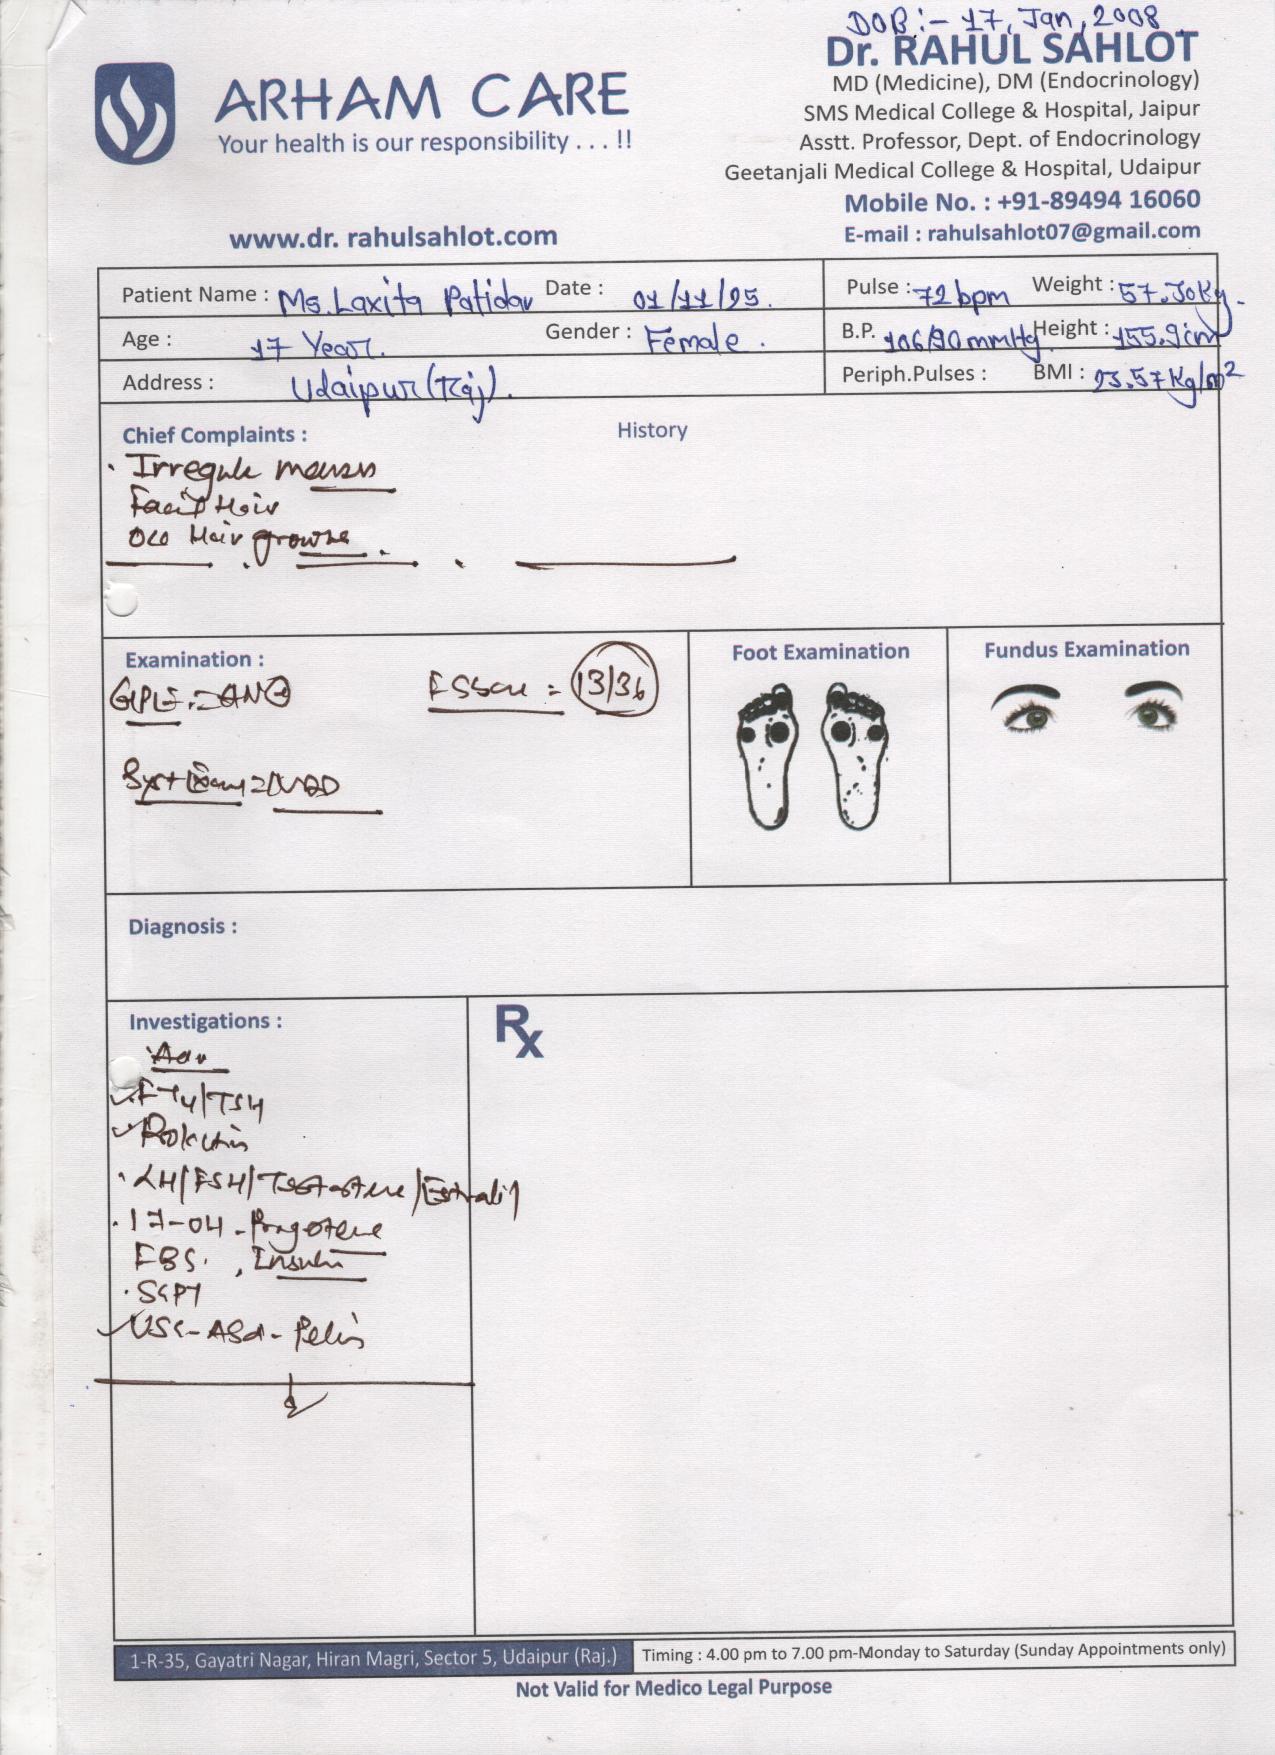 DOB :- 17, Jan, 2008
Dr. RAHUL SAHLOT
MD (Medicine), DM (Endocrinology)
SMS Medical College & Hospital, Jaipur
Asstt. Professor, Dept. of Endocrinology
Geetanjali Medical College & Hospital, Udaipur
Mobile No. : +91-89494 16060
E-mail : rahulsahlot07@gmail.com
ARHAM CARE
Your health is our responsibility . . . !!
www.dr. rahulsahlot.com
Patient Name : Ms. Laxita Patidar Date : 01/11/25. Pulse : 72 bpm Weight : 57.30 Kg.
Age : 17 Year. Gender : Female. B.P. 106/90 mmHg. Height : 155.9 cm
Address : Udaipur (Raj). Periph.Pulses : BMI : 23.57 Kg/m²
Chief Complaints : History
Irregule menses
Facial Hair
Hair growth
Examination : Foot Examination Fundus Examination
= 13/36
Diagnosis :
Investigations : Rx
Adv
FT4/TSH
Prolactin
LH/FSH/Testosterone/Estradiol
17-OH-Progesterone
FBS, Insulin
SGPT
USG-Abd-Pelvis
1-R-35, Gayatri Nagar, Hiran Magri, Sector 5, Udaipur (Raj.) Timing : 4.00 pm to 7.00 pm-Monday to Saturday (Sunday Appointments only)
Not Valid for Medico Legal Purpose